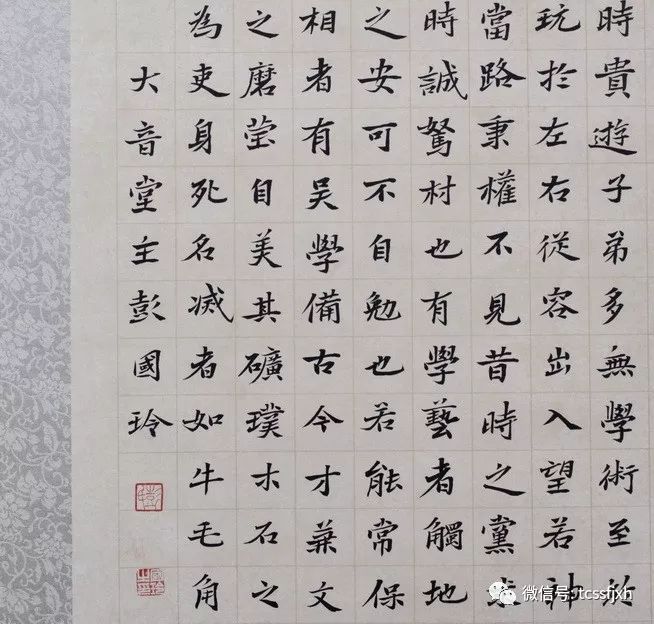 時貴遊子弟多無學術至於
玩於左右從容出入望若神
當路秉權不見昔時之黨
時誠駑材也有學藝者觸地
之安可不自勉也若能常保
相者有吴學備古今才兼文
之磨瑩自美其礦璞木石之
為吏身死名滅者如牛毛角
大音堂主彭國玲
微信号: tcssfjxh